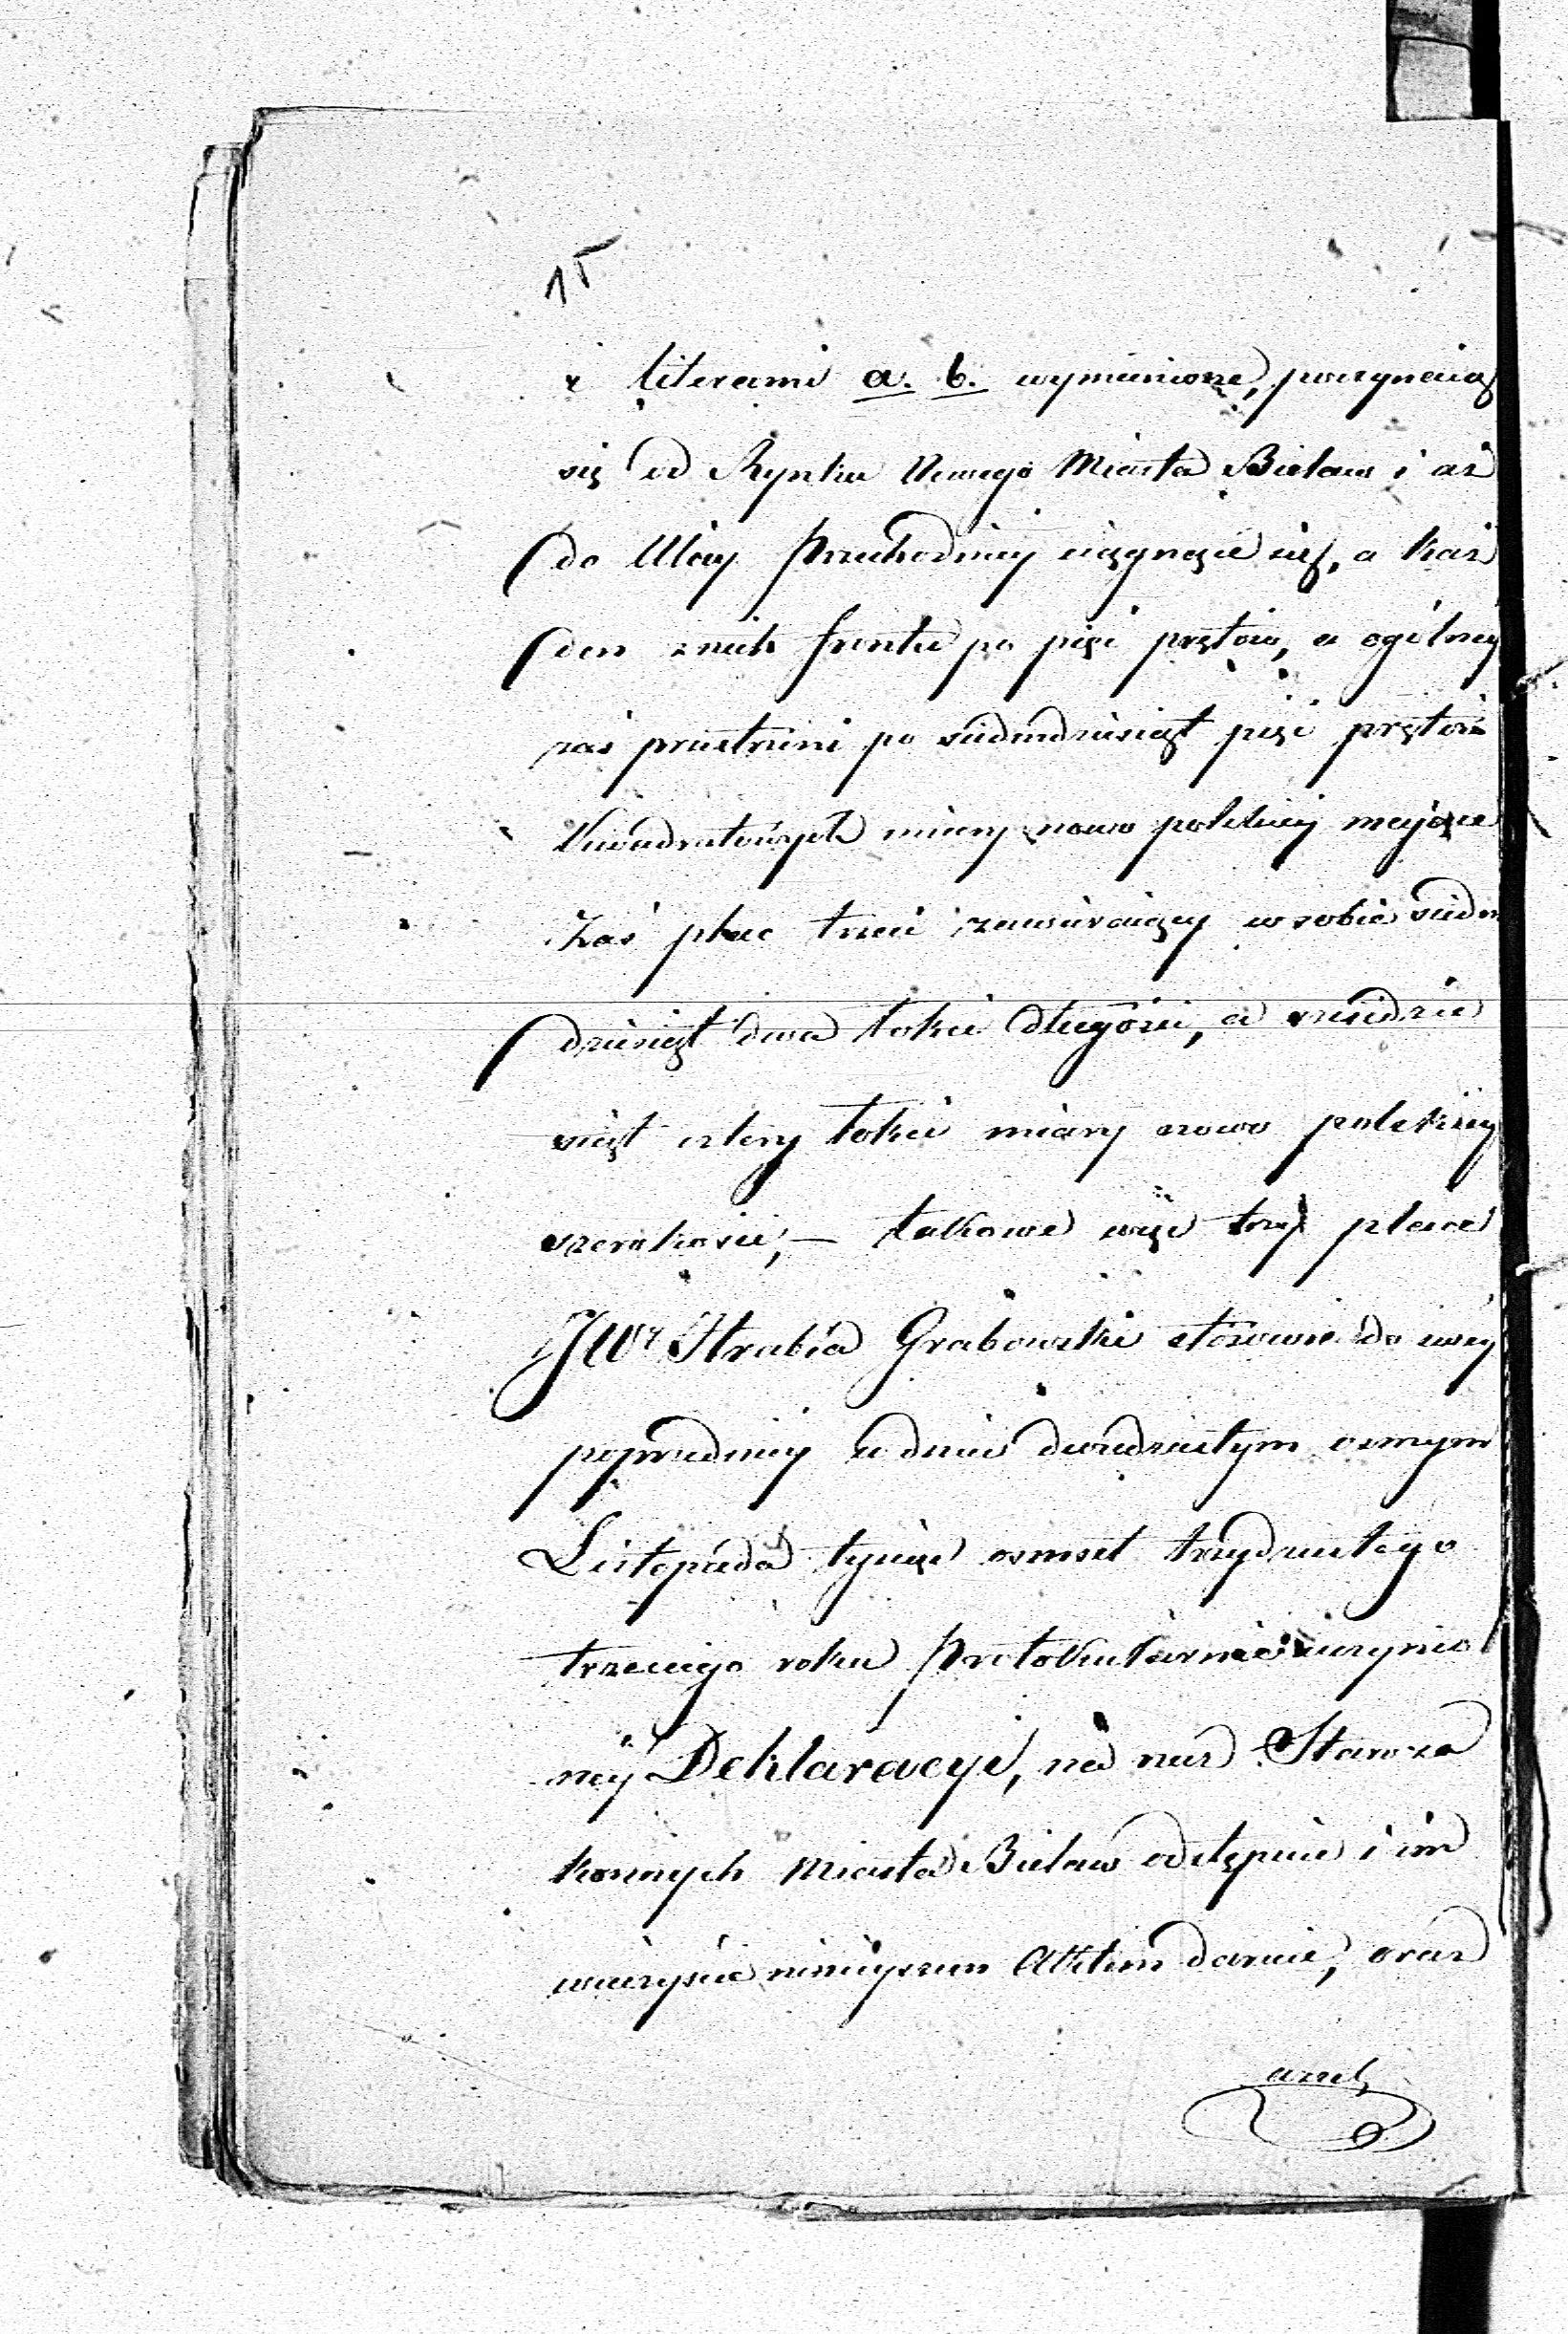 15
i literami a. b. wymienione, poczynaią
się od Rynku Nowego Miasta Bielaw i aż
do Ulicy Przechodniey ciągnące się, a każ
den z nich frontu po pięć prętów, a ogólney
zaś przestrzeni po siedmdziesiąt pięć prętów
Kwadratowych miary nowo polskiey mające
Zaś plac trzeci zawieraiący w sobie siedm
dziesiąt dwa łokcie długości, a sześćdzie
siąt cztery łokcie miary nowo polskiey
szerokości, — takowe więc trzy place
JWy Hrabia Grabowski stósownie do swey
poprzedniey w dniu dwudziestym osmym
Listopada tysiąc osmset trzydziestego
trzeciego roku Protokularnie uczynio
ney Deklaracyi, na rzecz Staroza
konnych Miasta Bielaw odstępuie i im
wieczyście ninieyszem Aktem daruie, oraz